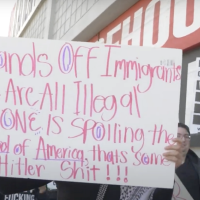 ands Off Immigrants
Are All Illegal
ONE is Spoiling the
od of America, thats some
Hitler Shit!!!
HOU
FUCKING